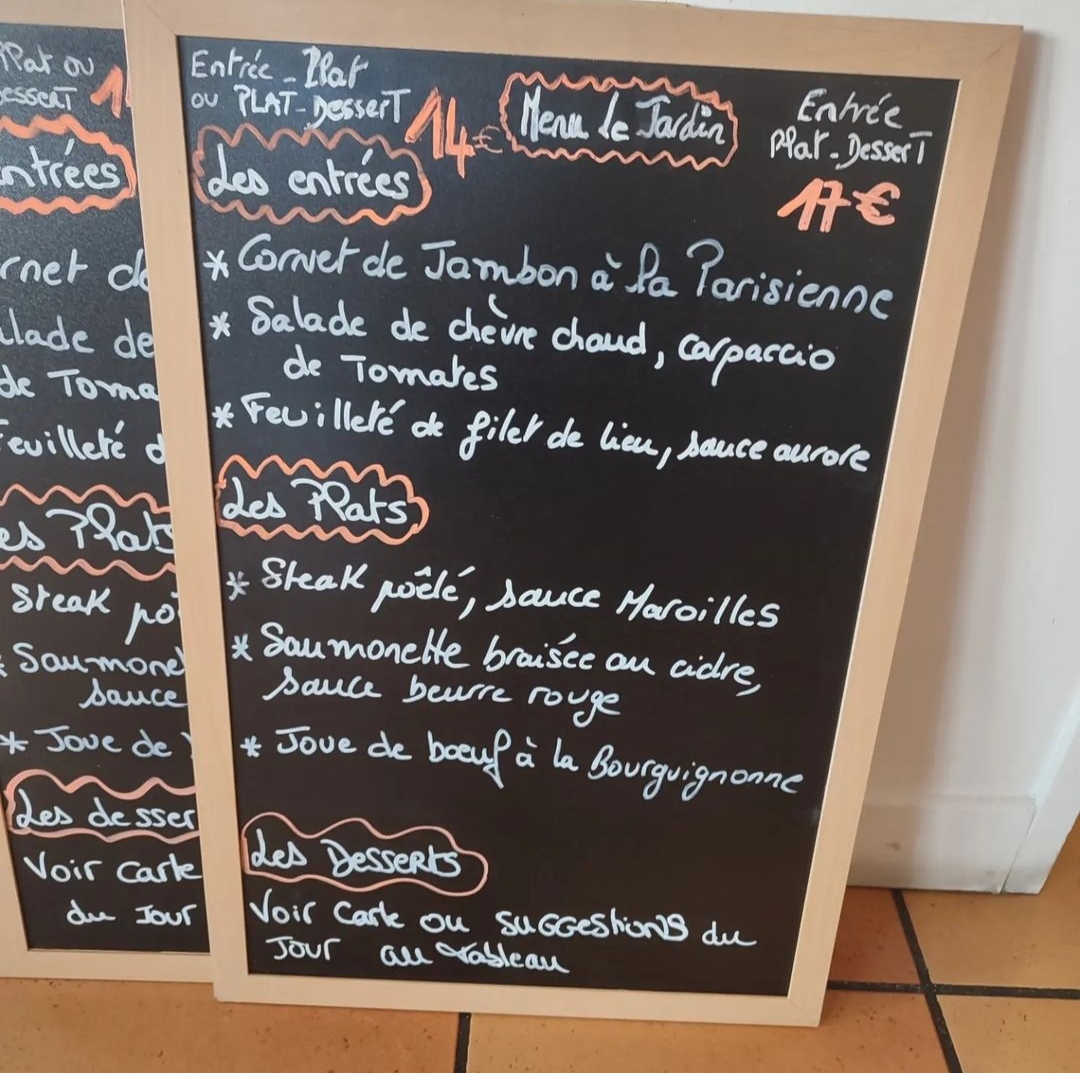 Plat ou
Dessert
entrées
rnet de
alade de
de Toma
Feuilleté d
es Plats
Steak po
Saumone
sauce
* Joue de
Les desser
Voir Carte
du Jour
Entrée - Plat
ou PLAT - Dessert
14€
Menu Le Jardin
Entrée
Plat - Dessert
17€
Les entrées
* Cornet de Jambon à la Parisienne
* Salade de chèvre chaud, carpaccio
de Tomates
* Feuilleté de filet de lieu, sauce aurore
Les Plats
* Steak poêlé, sauce Maroilles
* Saumonette braisée au cidre,
sauce beurre rouge
* Joue de bœuf à la Bourguignonne
Les Desserts
Voir Carte ou suggestions du
Jour au tableau